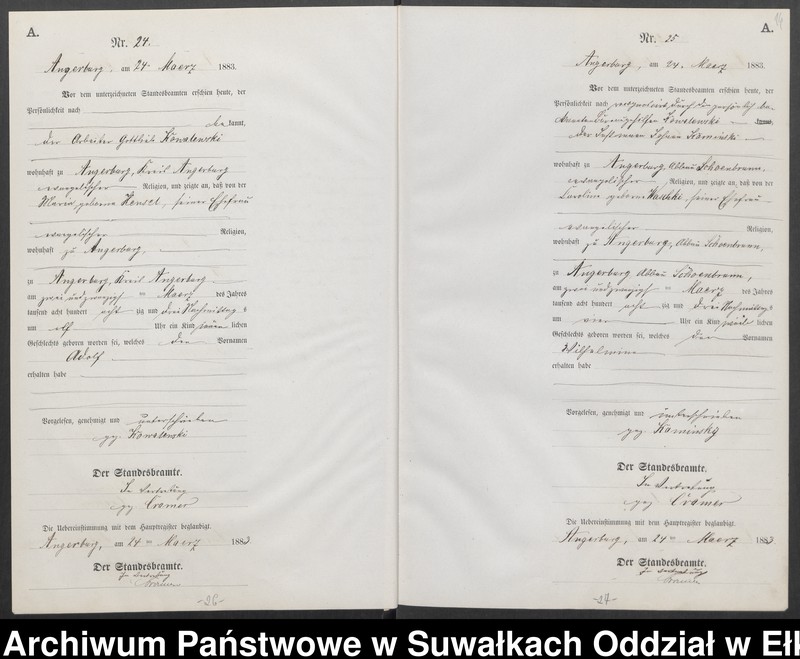 A.
Nr. 24.
Angerburg, am 24. Maerz 1883.
Vor dem unterzeichneten Standesbeamten erschien heute, der
Persönlichkeit nach
kannt,
der Arbeiter Gottlieb Kowalewski
wohnhaft zu Angerburg, Kreis Angerburg
evangelischer Religion, und zeigte an, daß von der
Maria geborne Hensel, seiner Ehefrau
evangelischer Religion,
wohnhaft zu Angerburg,
zu Angerburg, Kreis Angerburg
am zwei und zwanzigsten Maerz des Jahres
tausend acht hundert acht zig und drei Nachmittags
um elf Uhr ein Kind männ lichen
Geschlechts geboren worden sei, welches den Vornamen
Adolf
erhalten habe
Vorgelesen, genehmigt und unterschrieben
gez. Kowalewski
Der Standesbeamte.
In Vertretung
gez. Cramer
Die Uebereinstimmung mit dem Hauptregister beglaubigt.
Angerburg, am 24 ten Maerz 1883
Der Standesbeamte.
In Vertretung
Cramer
-26-
A.
Nr. 25
Angerburg, am 24. Maerz 1883.
Vor dem unterzeichneten Standesbeamten erschien heute, der
Persönlichkeit nach durch den persönlich be-
Kowalewski kannt,
der Johann Kaminski
wohnhaft zu Angerburg, Abbau Schoenbrunn,
evangelischer Religion, und zeigte an, daß von der
Caroline geborne seiner Ehefrau
evangelischer Religion,
wohnhaft zu Angerburg, Abbau Schoenbrunn,
zu Angerburg Abbau Schoenbrunn,
am zwei und zwanzigsten Maerz des Jahres
tausend acht hundert acht zig und drei Nachmittags
um vier Uhr ein Kind weib lichen
Geschlechts geboren worden sei, welches den Vornamen
Wilhelmine
erhalten habe
Vorgelesen, genehmigt und unterschrieben
gez. Kaminsky
Der Standesbeamte.
In Vertretung
gez. Cramer
Die Uebereinstimmung mit dem Hauptregister beglaubigt.
Angerburg, am 24 ten Maerz 1883
Der Standesbeamte.
In Vertretung
Cramer
-27-
Archiwum Państwowe w Suwałkach Oddział w Eł